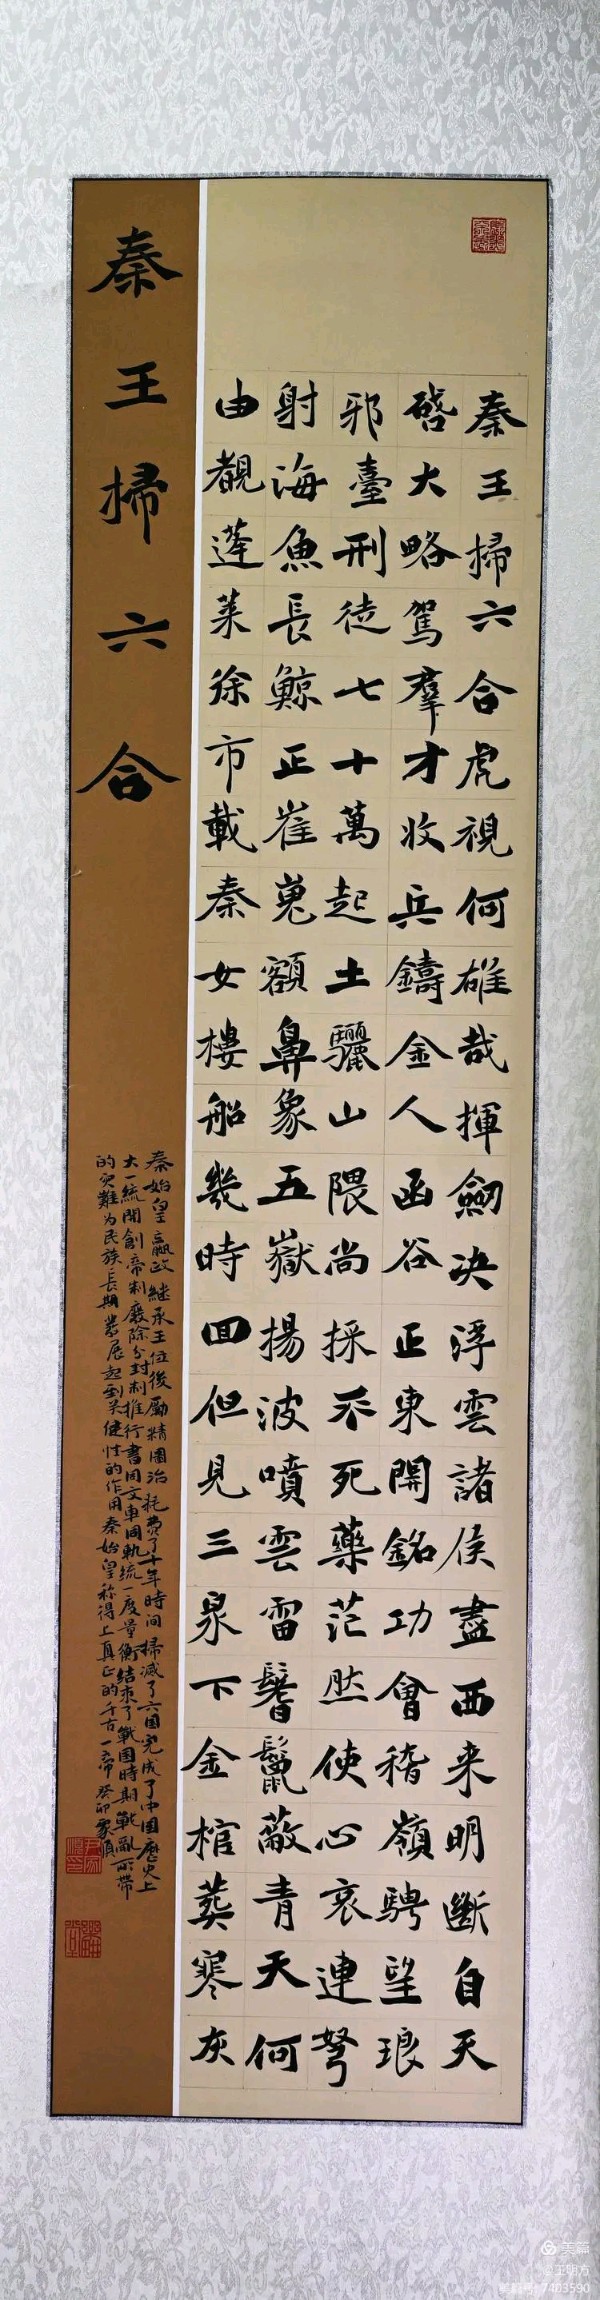 秦王掃六合虎視何雄哉揮劍决浮雲諸侯盡西来明斷自天
啓大略駕羣才收兵鑄金人函谷正東開銘功會稽嶺騁望琅
邪臺刑徒七十萬起土驪山隈尚採不死藥茫然使心哀連弩
射海魚長鯨正崔嵬額鼻象五嶽揚波噴雲雷鬐鬣蔽青天何
由覩蓬萊徐市載秦女樓船幾時回但見三泉下金棺葬寒灰
秦王掃六合
秦始皇嬴政継承王位後勵精圖治耗费了十年時间掃滅了六国完成了中国歷史上
大一統開創帝制廢除分封制推行書同文車同軌統一度量衡結束了戰国時期戰亂所帶
的灾難为民族長期發展起到关健性的作用秦始皇称得上真正的千古一帝 癸卯
美篇
@王明方
美篇号: 7403590